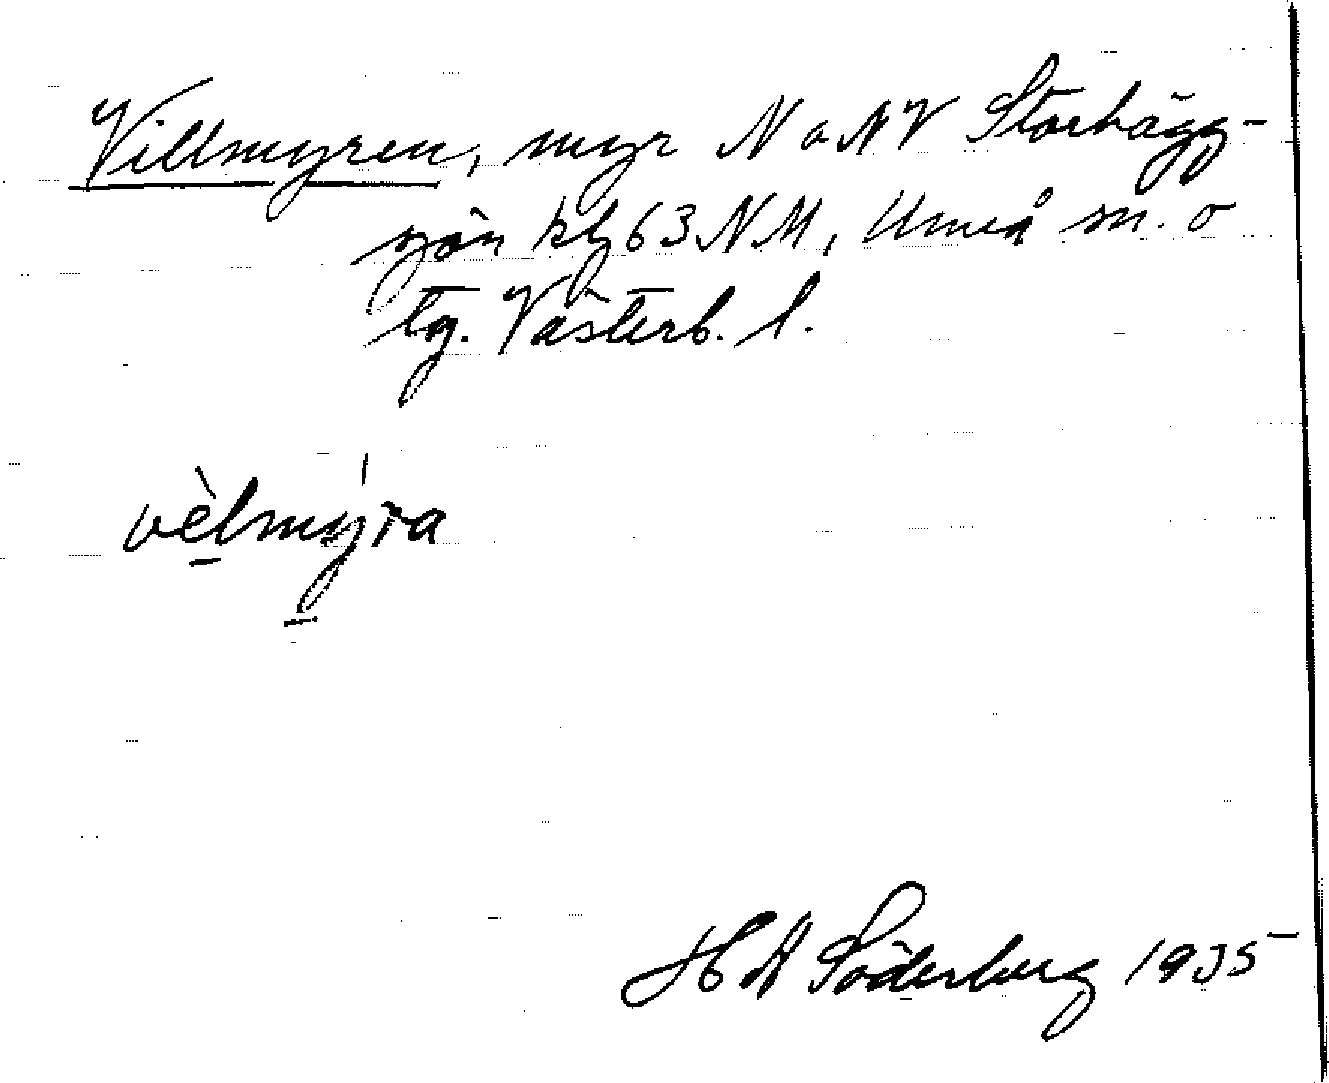 Villmyren, myr N o NV Storhägg-
sjön kbl 63 NM, Umeå sn. o
tg. Västerb. l.
vèlmýra
H A Söderberg 1935